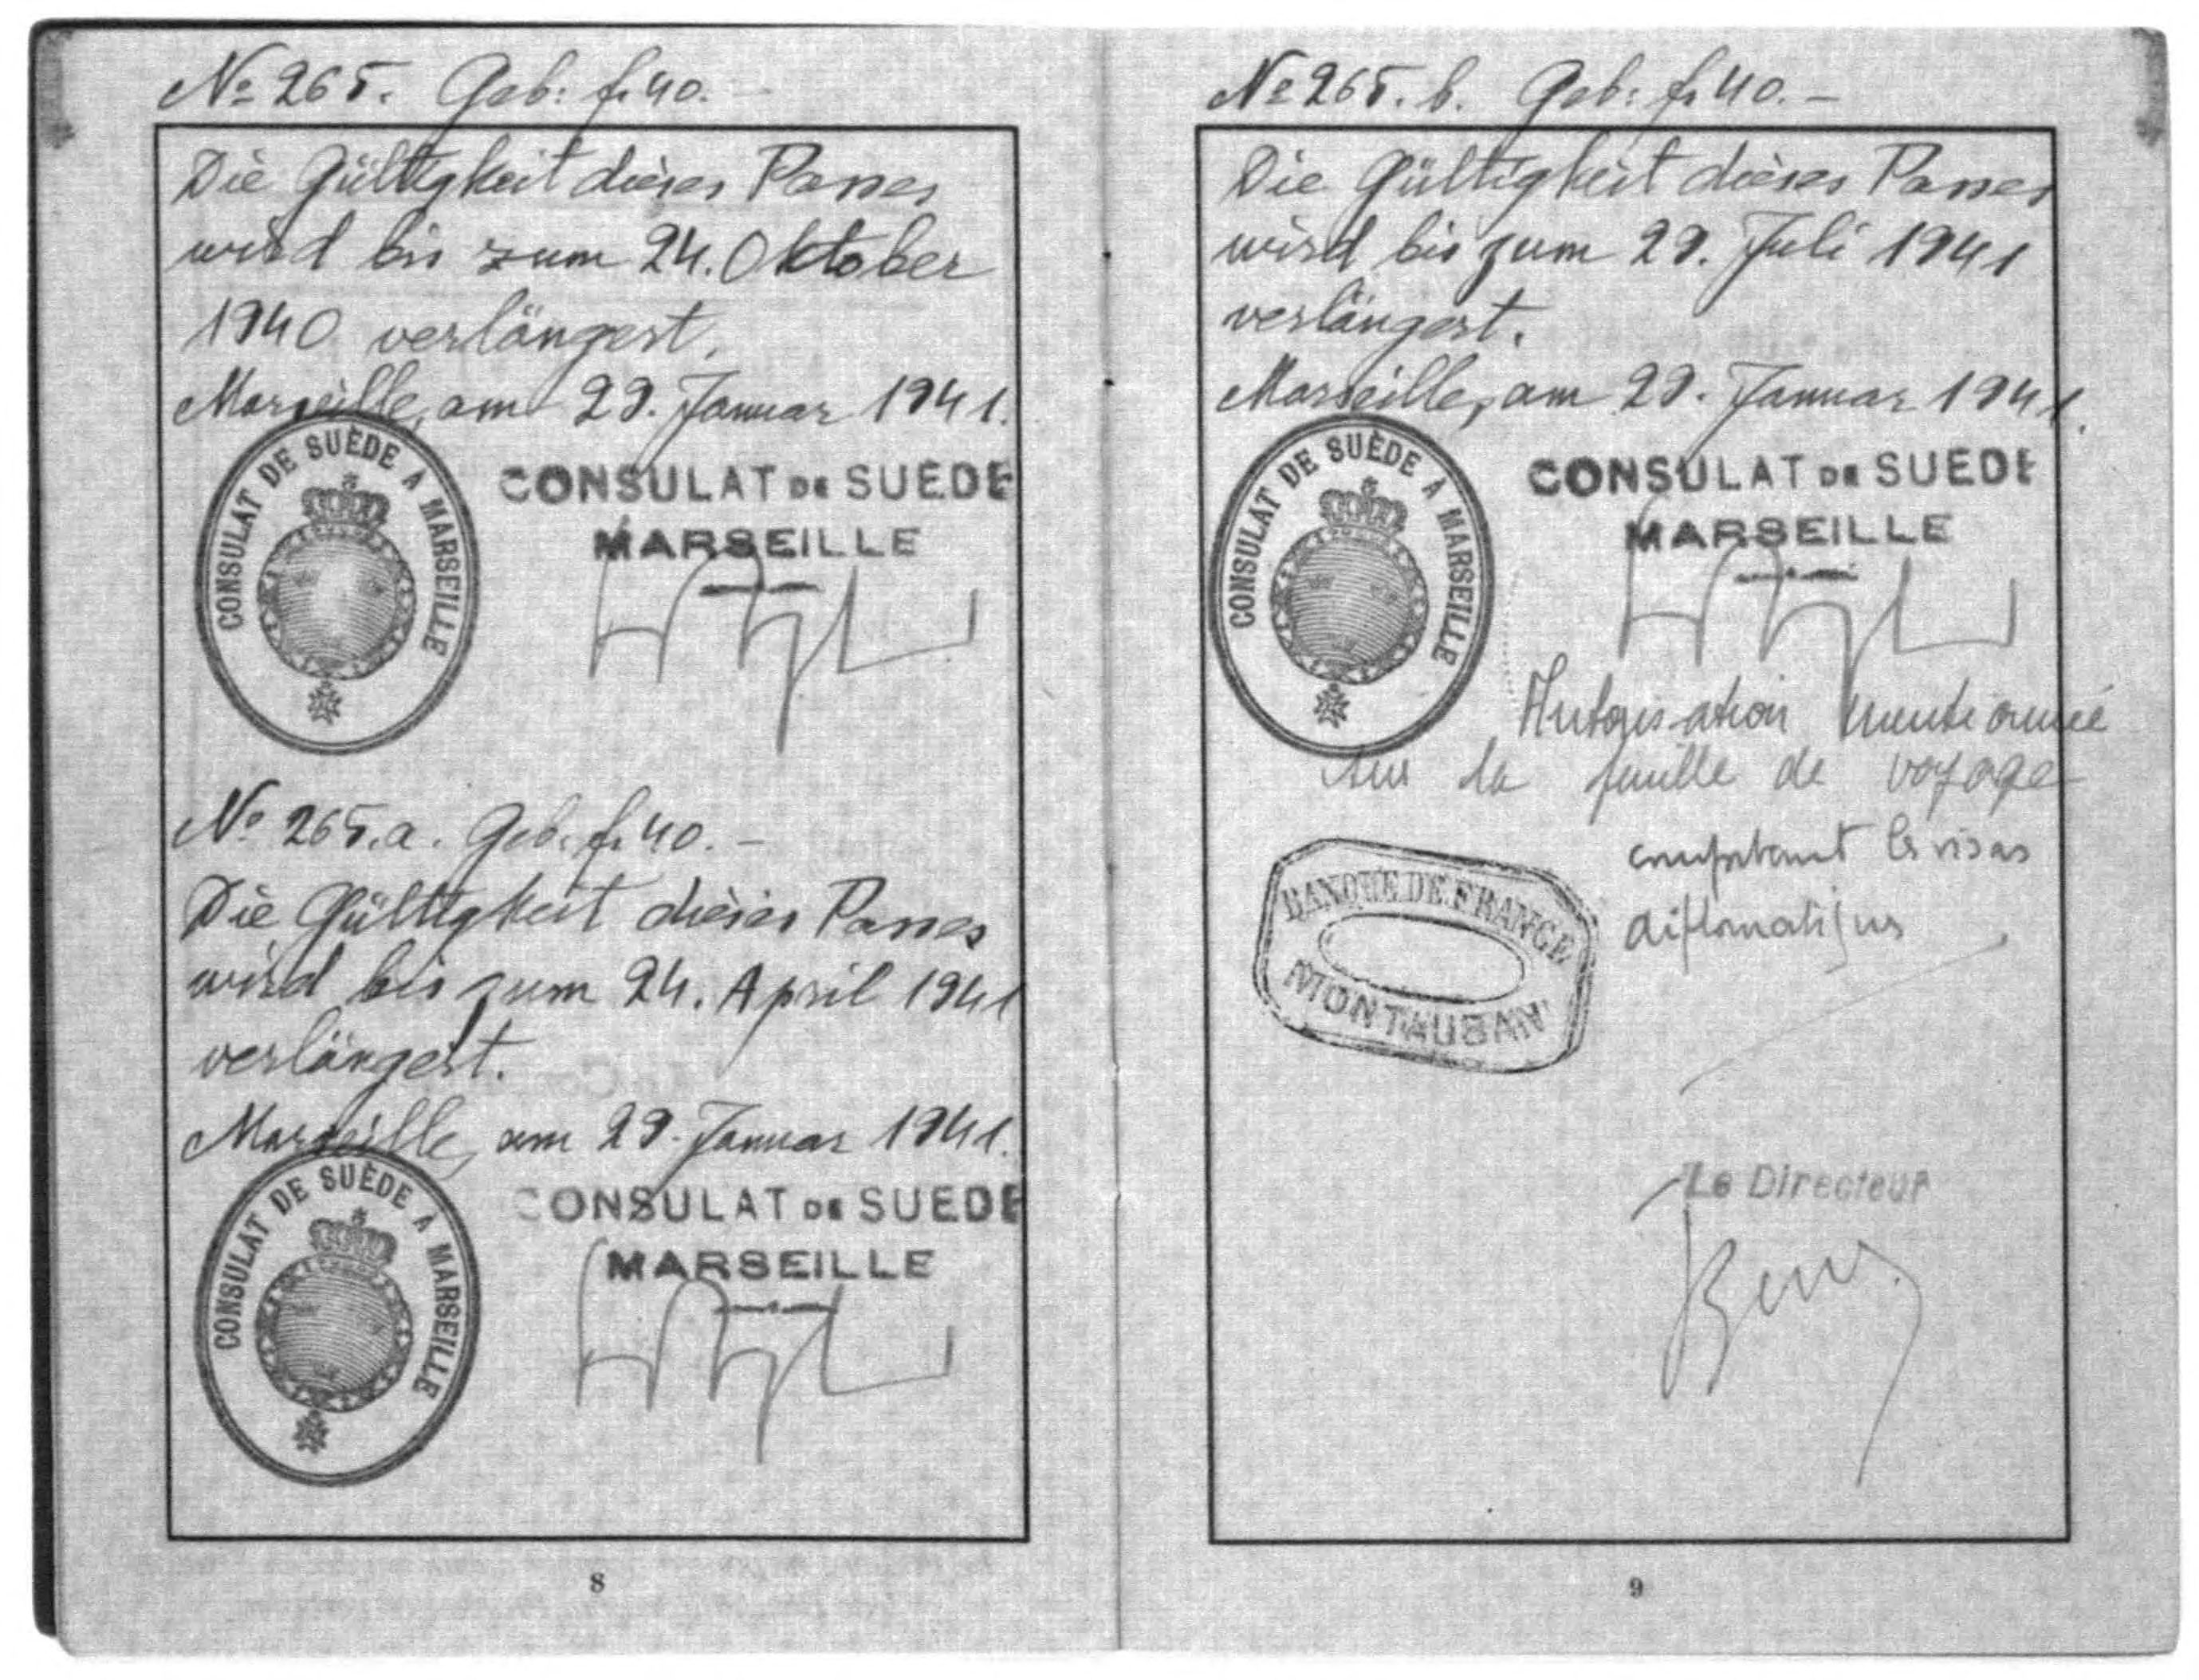 No 265. Geb: fr 40.-
Die Gültigkeit dieses Passes
wird bis zum 24. Oktober
1940 verlängert.
Marseille, am 29. Januar 1941.
CONSULAT DE SUÈDE A MARSEILLE
CONSULAT DE SUEDE
MARSEILLE
No 265.a. Geb. fr 40.-
Die Gültigkeit dieses Passes
wird bis zum 24. April 1941
verlängert.
Marseille, am 29. Januar 1941.
CONSULAT DE SUÈDE A MARSEILLE
CONSULAT DE SUEDE
MARSEILLE
8
No 265.b. Geb: fr 40.-
Die Gültigkeit dieses Passes
wird bis zum 29. Juli 1941
verlängert.
Marseille, am 29. Januar 1941.
CONSULAT DE SUÈDE A MARSEILLE
CONSULAT DE SUEDE
MARSEILLE
Autorisation mentionnée
sur la feuille de voyage
comportant les visas
diplomatiques
BANQUE DE FRANCE
MONTAUBAN
Le Directeur
9